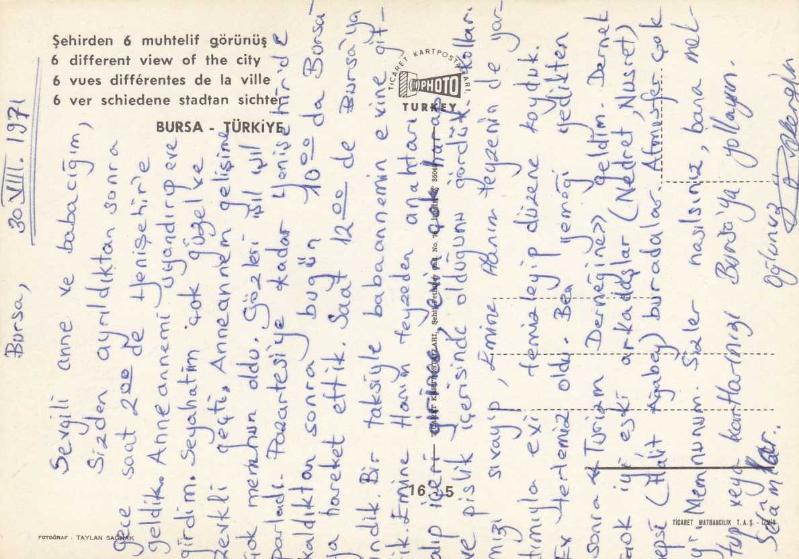 Şehirden 6 muhtelif görünüş
6 different view of the city
6 vues différentes de la ville
6 ver schiedene stadtan sichten
BURSA - TÜRKİYE
TİCARET KARTPOSTALLARI
PHOTO
TURKEY
16 5
FOTOĞRAF : TAYLAN
TİCARET MATBAACILIK T.A.Ş. - İZMİR
Bursa, 30.VIII.1971
Sevgili anne ve babacığım,
Sizden ayrıldıktan sonra
gece saat 2⁰⁰ de Yenişehir'e
geldik. Anneannemi uyandırıp eve
girdim. Seyahatim çok güzel ve
zevkli geçti. Anneannem gelişime
çok memnun oldu. Gözleri ışıl ışıl
parladı. Pazartesiye kadar Yenişehir'de
kaldıktan sonra bugün 10⁰⁰ da Bursa-
ya hareket ettik. Saat 12⁰⁰ de Bursa'ya
indik. Bir taksiyle babaannemin evine git-
tik. Emine Hanım teyzeden anahtarı
alıp içeri
ve pislik içerisinde olduğunu gördük. Kolları
mızı sıvayıp, Emine Hanım teyzenin de yar-
dımıyla evi temizleyip düzene koyduk.
Ev tertemiz oldu. Ben yemeği yedikten
sonra "Turizm Derneğine" geldim. Dernek
çok iyi eski arkadaşlar (Nedret, Nusret)
hepsi (Halit Ağabey) buradalar. Atmosfer çok
iyi. Memnunum. Sizler nasılsınız, bana mek-
tup veya kartlarınızı Bursa'ya yollayın.
Selâmlar.
Oğlunuz